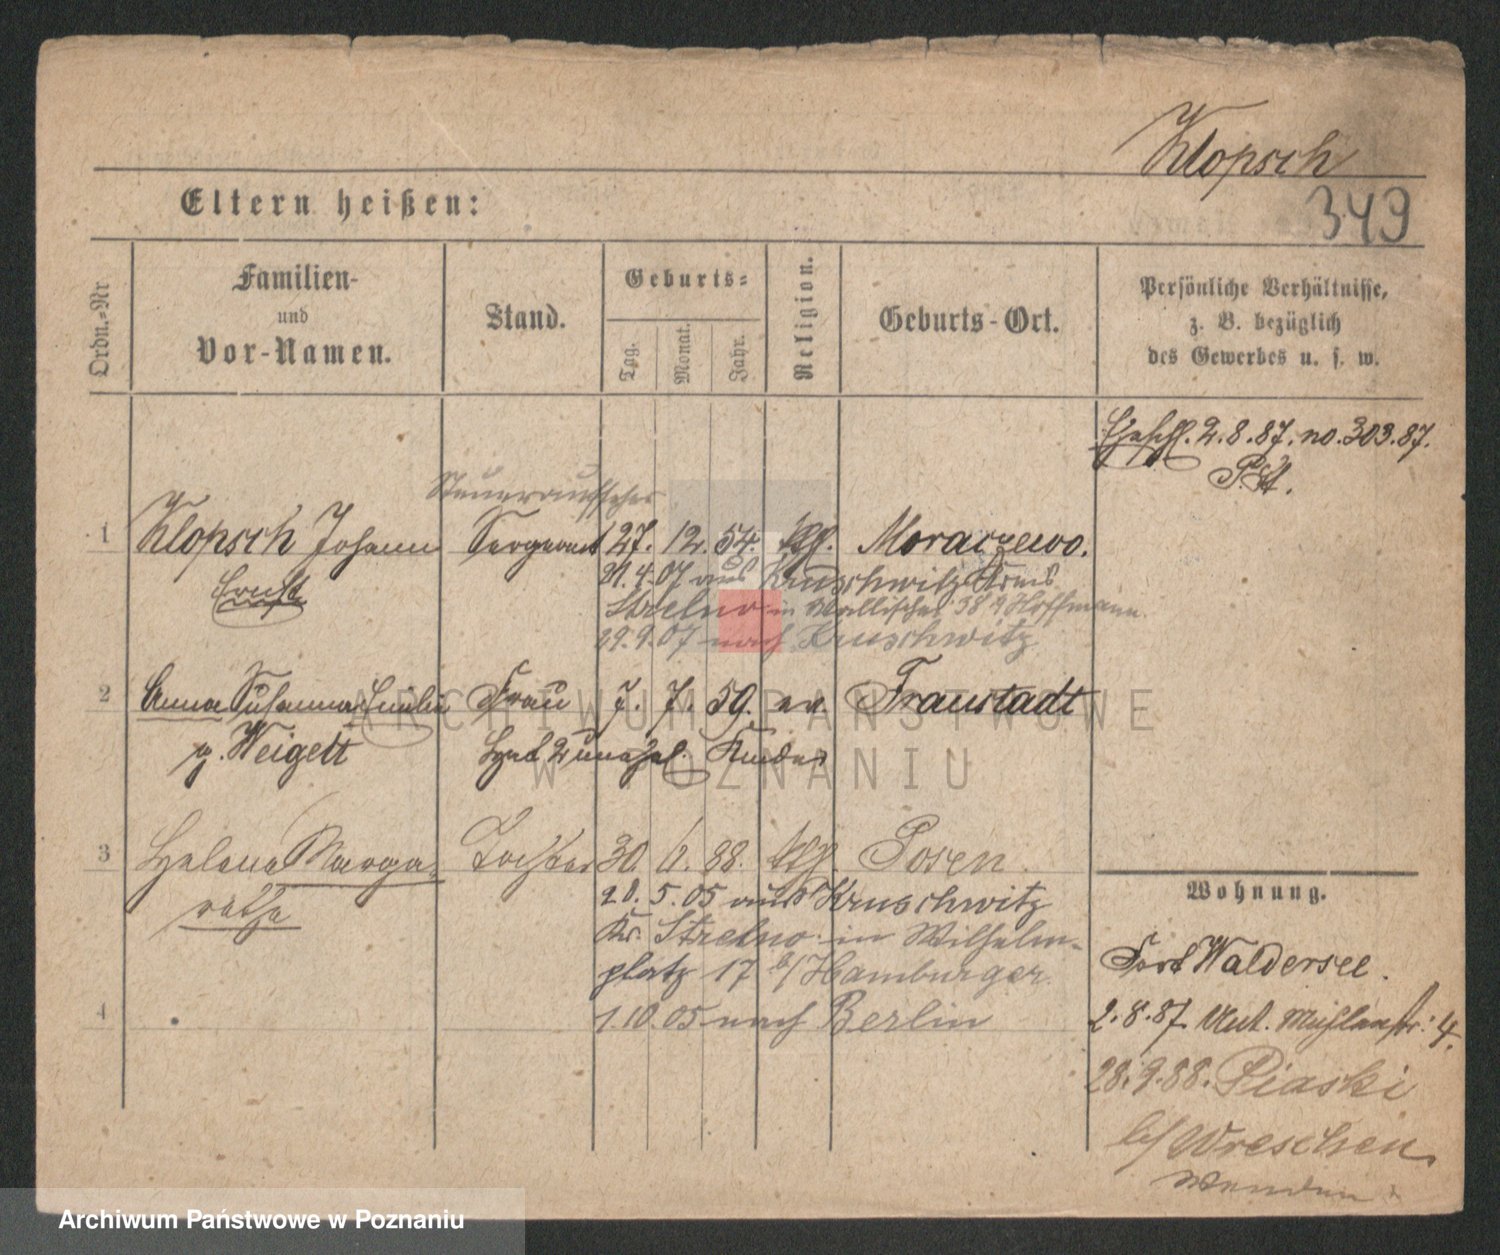 Klopsch
Eltern heißen:
349
Ordn.-Nr
Familien-
und
Vor-Namen.
Stand.
Geburts-
Tag.
Monat.
Jahr.
Religion.
Geburts-Ort.
Persönliche Verhältnisse,
z. B. bezüglich
des Gewerbes u. s. w.
Eheschl. 2.8.87. no. 303.87.
P. St.
Steueraufseher
1 Klopsch Johann Sergeant 27. 12. 54. kth. Moraczewo.
Ernst
21.4.07 aus Kruschwitz Kreis
Strelno in Wallischei 38 b/ Hoffmann
29.9.07 nach Kruschwitz
2 Anna Susanna Emilie Frau 7. 7. 59. ev. Fraustadt
g. Weigelt Hat 2 unehel. Kinder
3 Helene Marga- Tochter 30. 6. 88. kth. Posen
rethe
20.5.05 aus Kruschwitz
Kr. Strelno in Wilhelm-
platz 17 b/ Hamburger
4 1.10.05 nach Berlin
Wohnung.
Fort Waldersee.
2.8.87. Unt. Mühlenstr: 4.
28.9.88. Piaski
b/ Wreschen
ARCHIWUM PAŃSTWOWE
W POZNANIU
Archiwum Państwowe w Poznaniu